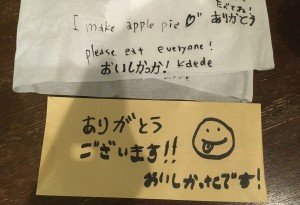 I make apple pie♡
たべてね!
ありがとう
please eat everyone!
おいしかっか! kaede
ありがとう
ございます!!
おいしかったです!